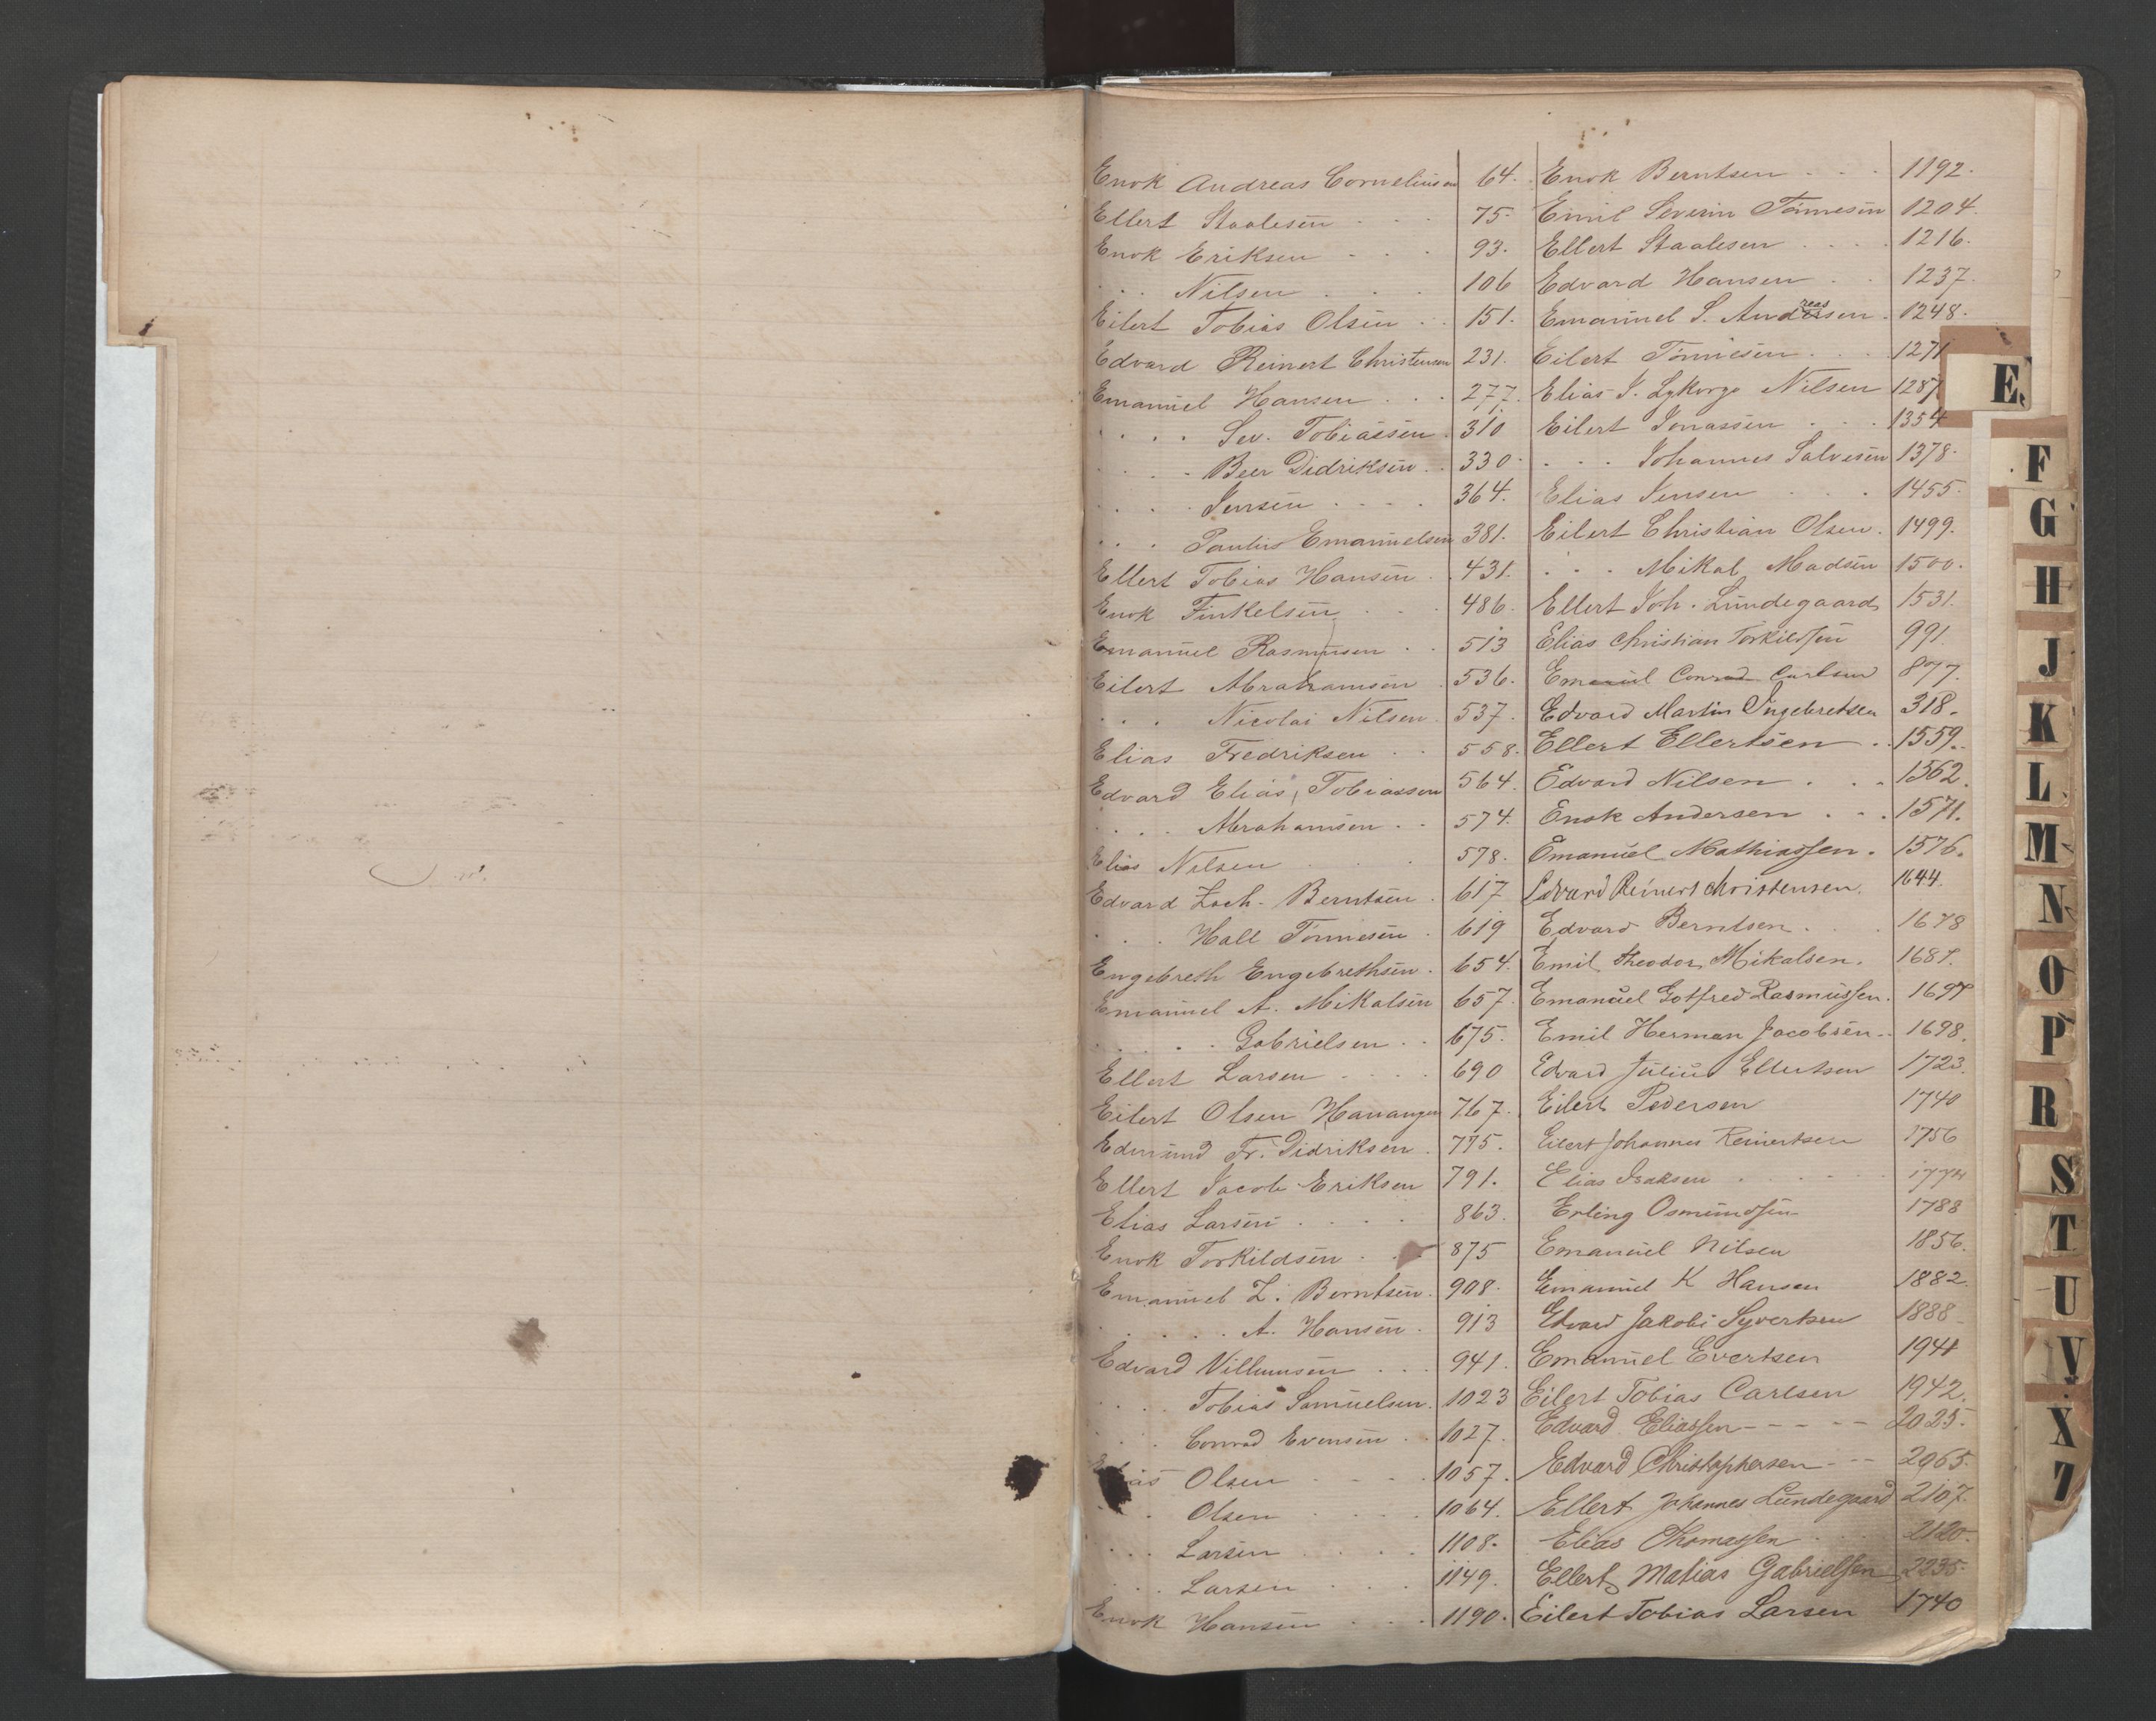 Enok Andreas Corneliusen 64.
Ellert Staalesen . . . 75.
Enok Eriksen . . . 93.
. . . Nilsen . . . 106
Eilert Tobias Olsen . . 151.
Edvard Reinert Christensen 231.
Emanuel Hansen . . . 277.
. . . . Sev. Tobiassen . 310
. . . . Beer Didriksen . . 330.
. . . . Jensen . . . . 364.
. . . Paulus Emanuelsen 381.
Ellert Tobias Hansen . . 431.
Enok Finkelsen . . . 486.
Emanuel Rasmusen . . 513
Eilert Abrahamsen . 536.
. . . Nicolai Nilsen . 537.
Elias Fredriksen . . 558.
Edvard Elias Tobiassen 564.
. . . . Abrahamsen . . 574.
Elias Nilsen . . . 578.
Edvard Zach. Berntsen . 617
. . . Hall Tønnesen . 619
Engebreth Engebrethsen . 654.
Emanuel A. Mikalsen 657.
. . . . . Gabrielsen . . 675.
Ellert Larsen . . . . 690
Eilert Olsen Hanangen 767.
Edmund Fr. Didriksen . 775.
Ellert Jacob Eriksen 791.
Elias Larsen . . . . 863.
Enok Torkildsen . . . 875
Emanuel Z. Berntsen . 908.
. . . . . A. Hansen . 913
Edvard Villumsen . . . 941.
. . . . Tobias Samuelsen . 1023
. . . Conrad Evensen . . 1027.
Elias Olsen . . . . 1057.
. . Olsen . . . . 1064.
. . . Larsen . . . . 1108.
. . . Larsen . . . . 1149.
Enok Hansen . . . . 1190.
Enok Berntsen . . . 1192.
Emil Severin Tønnesen 1204.
Ellert Staalesen . . . . 1216.
Edvard Hansen . . 1237.
Emanuel S. Andreassen . 1248.
Eilert Tønnesen . . . 1271
Elias J. Lykorgo Nilsen 1287
Eilert Jonassen . . . 1354
. . . Johannes Salvesen 1378.
Elias Jensen . . . 1455.
Eilert Christian Olsen . 1499.
. . . Mikal Madsen 1500.
Ellert Joh. Lundegaard 1531.
Elias Christian Torkildsen 991.
Emanuel Conrad Carlsen 897.
Edvard Martin Ingebretsen 318.
Ellert Ellertsen . . 1559.
Edvard Nilsen . . . 1562.
Enok Andersen . . . 1571.
Emanuel Mathiassen . 1576.
Edvard Reinert Christensen . 1644.
Edvard Berntsen . . . 1678
Emil Theodor Mikalsen . 1687.
Emanuel Gotfred Rasmussen . 1697
Emil Herman Jacobsen . . 1698.
Edvard Julius Ellertsen 1723.
Eilert Pedersen 1740
Eilert Johannes Reinertsen 1756
Elias Isaksen . . . . . .
Erling Osmundsen 1788
Emanuel Nilsen 1856.
Emanuel K Hansen 1882.
Edvard Jakobi Syvertsen 1888
Emanuel Evertsen 1941
Eilert Tobias Carlsen 1942.
Edvard Eliassen - - - - - 2025.
Edvard Christophersen - - 2065.
Ellert Johannes Lundegaard 2107.
Elias Thomassen . . . . 2120.
Ellert Matias Gabrielsen 2235.
Eilert Tobias Larsen 1740
E.
F
G
H
J
K
L.
M
N
O
P
R
S
T
U
V
X
Z